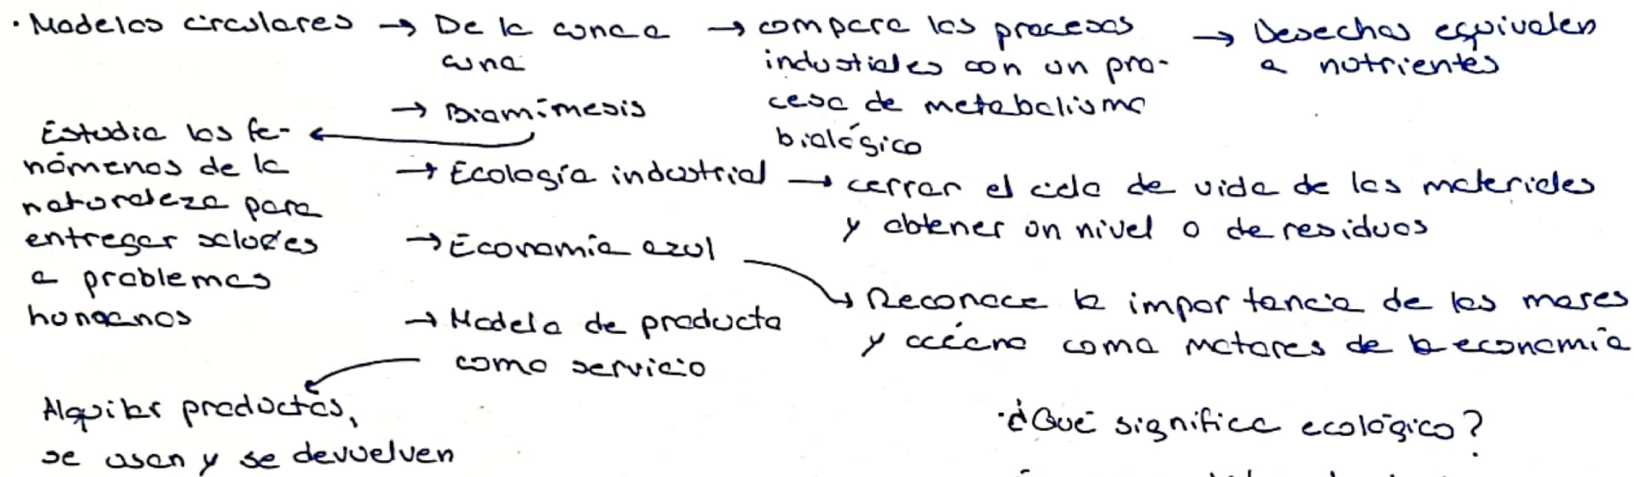 · Modelos circulares → De la cuna a cuna → compara los procesos industiales con un pro-ceso de metabolismo biológico → Desechos equivalen a nutrientes
→ Biomímesis
Estudia los fe-
nómenos de la
naturaleza para
entregar
a problemas
humanos
→ Ecología industrial → cerrar el ciclo de vida de los materiales
y obtener un nivel 0 de residuos
→ Economía azul
→ Reconoce la importancia de los mares
y océano como motores de la economía
→ Modelo de producto
como servicio
Alquilar productos,
se usan y se devuelven
· ¿Qué significa ecológico?